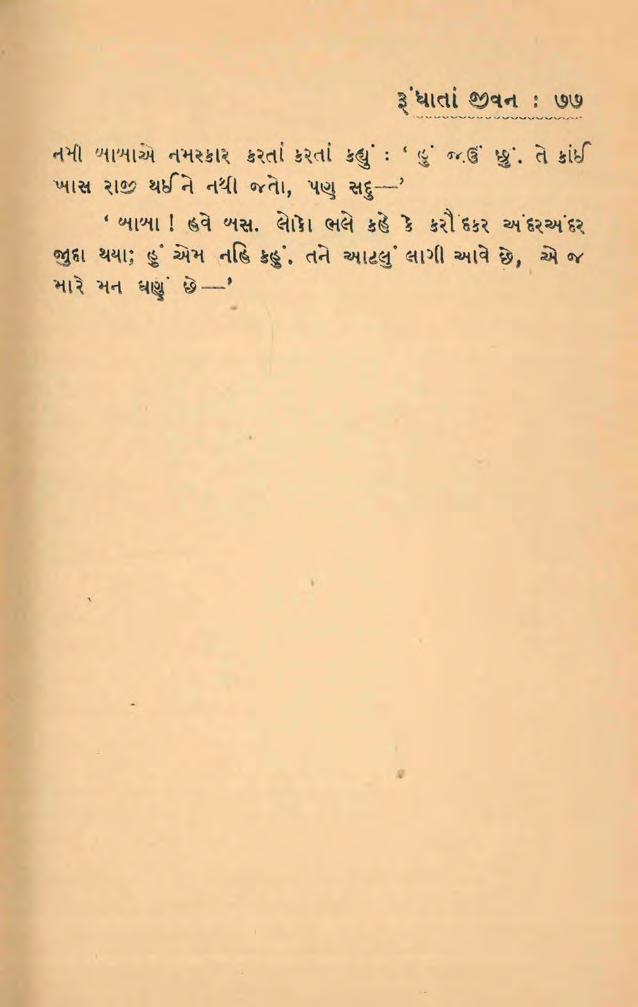 રૂંધાતાં જીવન : ૭૭
નમી બાબાએ નમસ્કાર કરતાં કરતાં કહ્યું : ‘ હું જઉં છું. તે કાંઈ
ખાસ રાજી થઈને નથી જતો, પણ સદુ—’
‘ બાબા ! હવે બસ. લોકો ભલે કહે કે કરૌંદકર અંદરઅંદર
જુદા થયા; હું એમ નહિ કહું. તને આટલું લાગી આવે છે, એ જ
મારે મન ઘણું છે—’